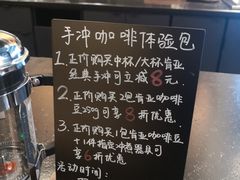 手冲咖啡体验包
1.正价购买中杯/大杯肯亚
经典手冲可立减8元
2.正价购买2包肯亚咖啡
豆250g可享8折优惠
3.正价购买1包肯亚咖啡豆
+1件指定冲煮器具可
享6折优惠
活动时间: